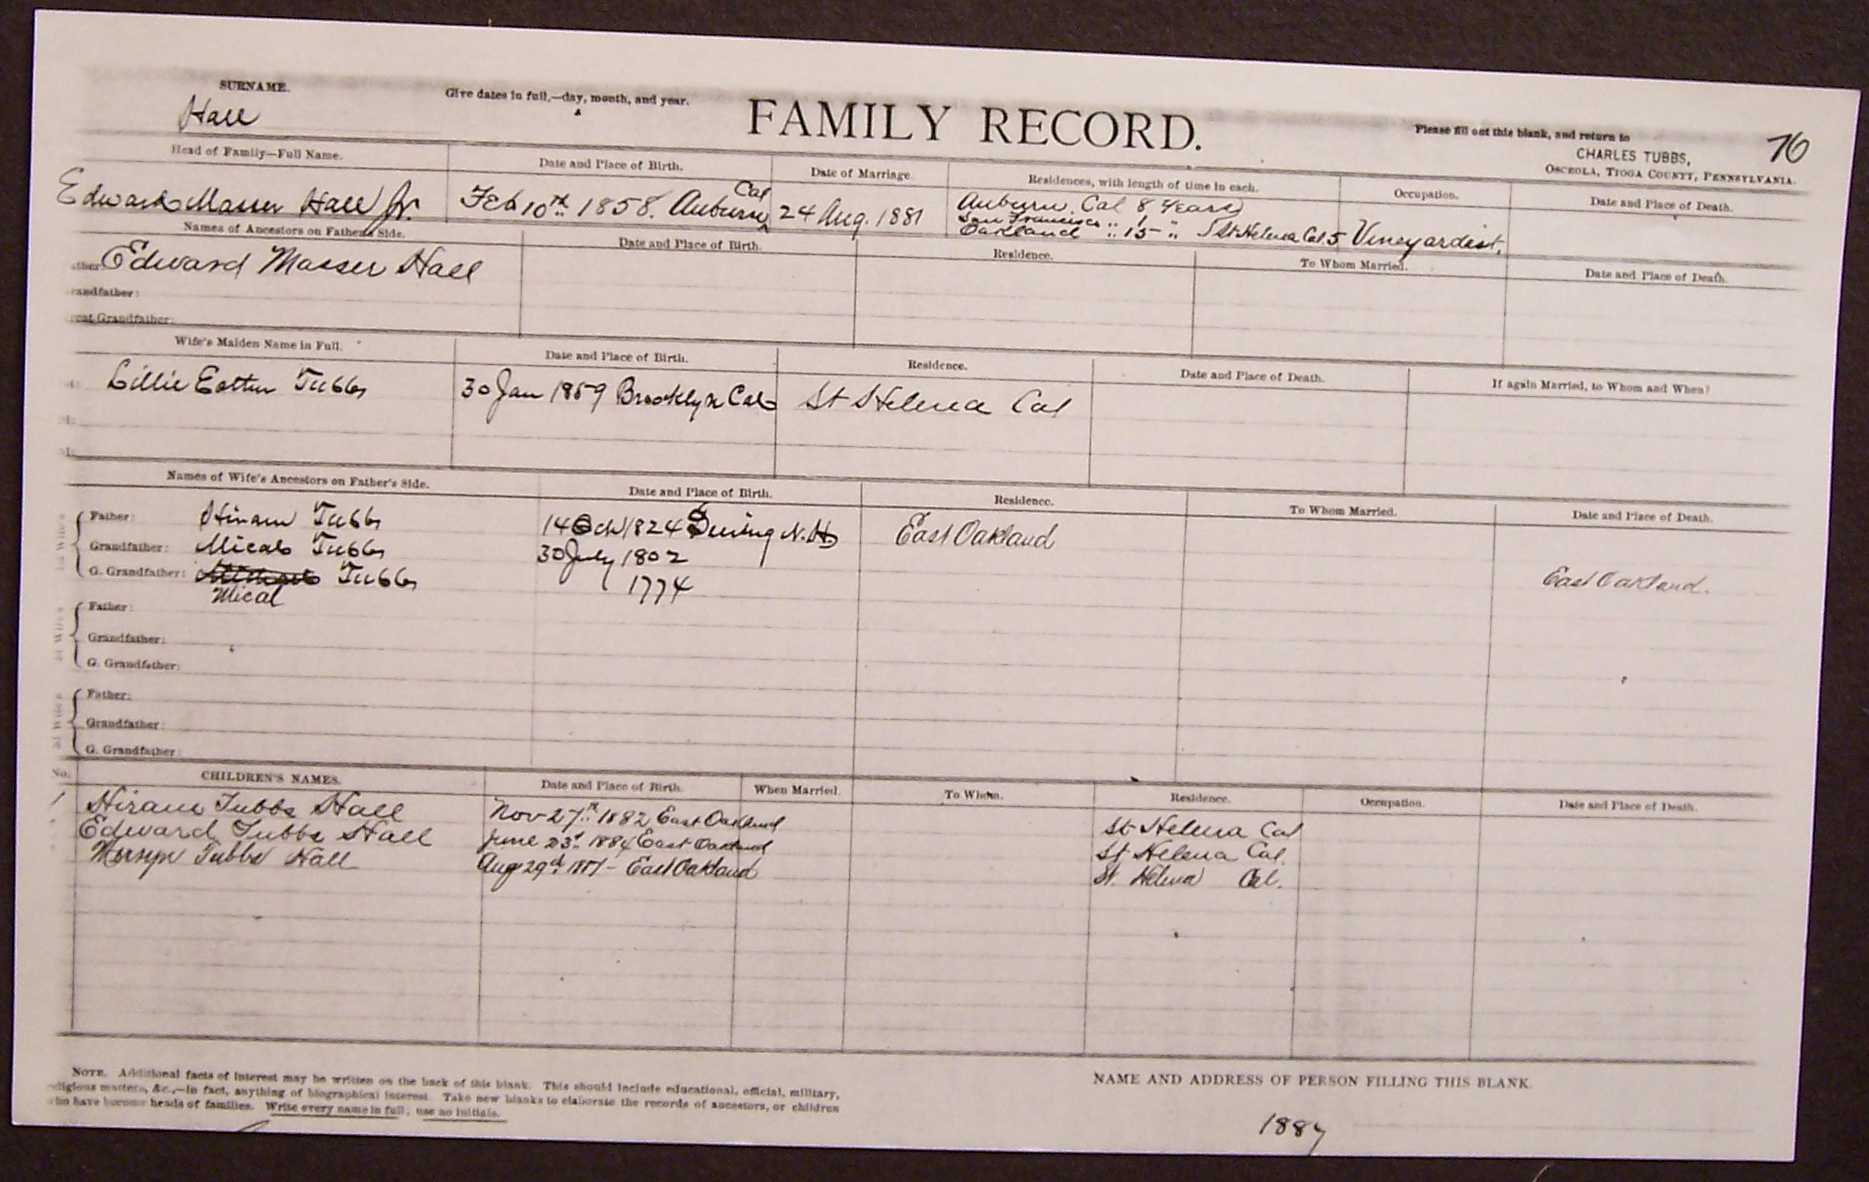 SURNAME.
Hall
Give dates in full,—day, month, and year.
FAMILY RECORD.
Please fill out this blank, and return to
CHARLES TUBBS,
OSCEOLA, TIOGA COUNTY, PENNSYLVANIA.
76
Head of Family—Full Name. Date and Place of Birth. Date of Marriage. Residences, with length of time in each. Occupation. Date and Place of Death.
Edward Masser Hall Jr. Feb 10th 1858. Auburn Cal 24 Aug. 1881 Auburn, Cal 8 Years Vineyardist.
San Francisco " 1 "
Oakland " 15 " St Helena Cal 5
Names of Ancestors on Father's Side. Date and Place of Birth. Residence. To Whom Married. Date and Place of Death.
ather: Edward Masser Hall
randfather:
reat Grandfather:
Wife's Maiden Name in Full. Date and Place of Birth. Residence. Date and Place of Death. If again Married, to Whom and When?
Lillie Esther Tubbs 30 Jan 1859 Brooklyn Cal St Helena Cal
Names of Wife's Ancestors on Father's Side. Date and Place of Birth. Residence. To Whom Married. Date and Place of Death.
Father: Hiram Tubbs 14 Oct 1824 Deering N.H. East Oakland
Grandfather: Mical Tubbs 30 July 1802
G. Grandfather: Tubbs 1774 East Oakland.
Mical
Father:
Grandfather:
G. Grandfather:
Father:
Grandfather:
G. Grandfather:
No. CHILDREN'S NAMES. Date and Place of Birth. When Married. To Whom. Residence. Occupation. Date and Place of Death.
1 Hiram Tubbs Hall Nov 27th 1882 East Oakland St Helena Cal
Edward Tubbs Hall June 23d 1884 East Oakland St Helena Cal.
Mersyn Tubbs Hall Aug 29th - East Oakland St. Helena Cal.
NOTE. Additional facts of interest may be written on the back of this blank. This should include educational, official, military,
religious matters, &c.,—in fact, anything of biographical interest. Take new blanks to elaborate the records of ancestors, or children
who have become heads of families. Write every name in full; use no initials.
NAME AND ADDRESS OF PERSON FILLING THIS BLANK.
1887